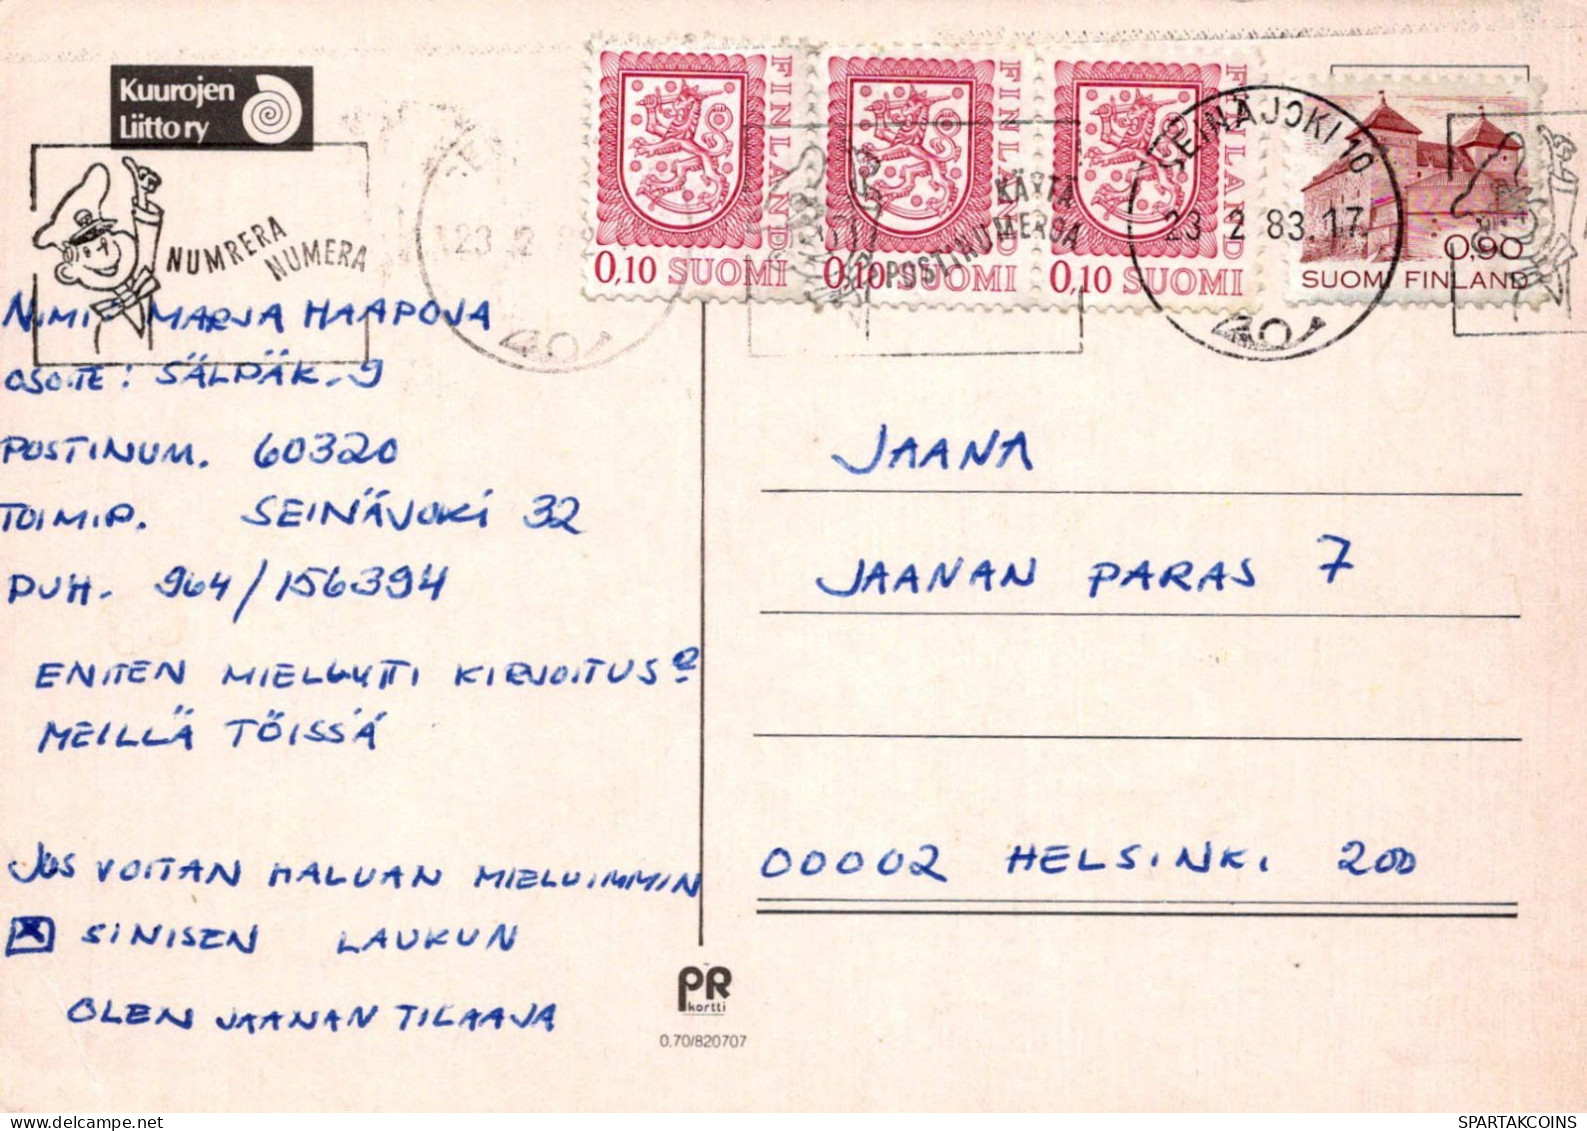 Kuurojen
Liitto ry
NUMRERA
NUMERA
FINLAND
0,10 SUOMI
FINLAND
0,10 SUOMI
FINLAND
0,10 SUOMI
KÄYTÄ
POSTINUMEROA
SEINÄJOKI 10
23 2 83.17
0,90
SUOMI FINLAND
23 2 8
NIMI MARJA HAAPOJA
OSOITE: SÄLPÄK. 9
POSTINUM. 60320
TOIMIP. SEINÄJOKI 32
PUH. 964/156394
ENITEN MIELLYTTI KIRJOITUS
MEILLÄ TÖISSÄ
JOS VOITAN HALUAN MIELUIMMIN
SINISEN LAUKUN
OLEN JAANAN TILAAJA
JAANA
JAANAN PARAS 7
00002 HELSINKI 200
PR
kortti
0.70/820707
SPARTAKCOINS